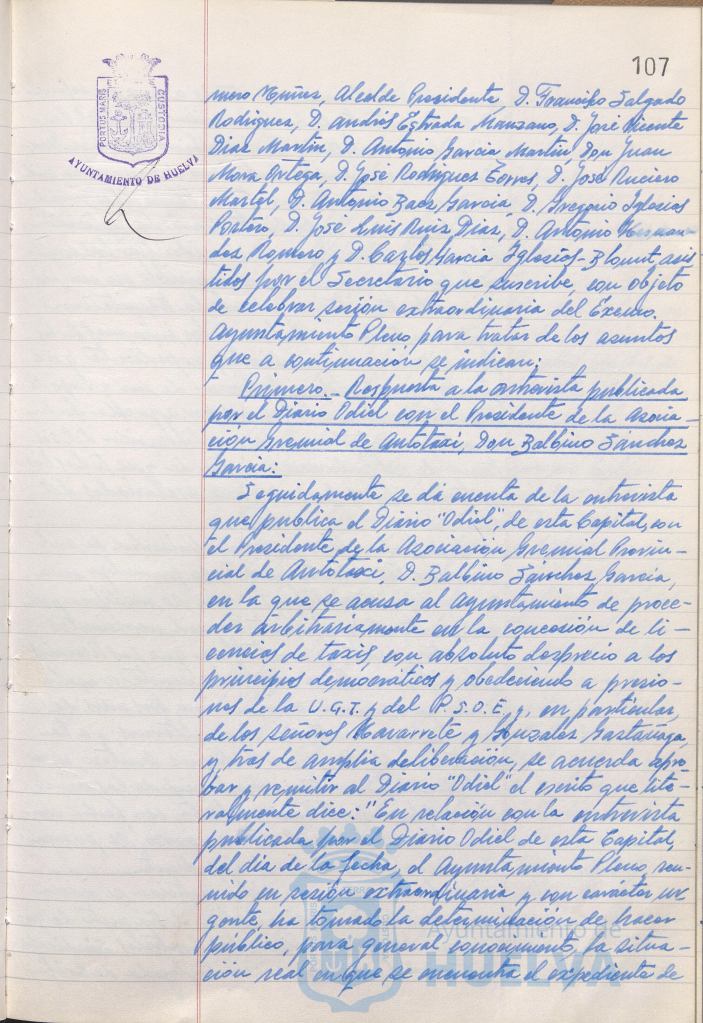 107
PORTUS MARIS CUSTODIA
AYUNTAMIENTO DE HUELVA
mero Núñez, Alcalde Presidente, D. Francisco Salgado
Rodríguez, D. Andrés Estrada Manzano, D. José Vicente
Díaz Martín, D. Antonio García Martín, Don Juan
Mora Ortega, D. José Rodríguez Torres, D. José Ruciero
Martel, D. Antonio Baez García, D. Gregorio Iglesias
Portero, D. José Luis Ruiz Díaz, D. Antonio Hernan-
dez Romero y D. Carlos García Iglesias-Blount, asis-
tidos por el Secretario que suscribe, con objeto
de celebrar sesión extraordinaria del Excmo.
Ayuntamiento Pleno para tratar de los asuntos
que a continuación se indican:
Primero.- Respuesta a la entrevista publicada
por el Diario Odiel con el Presidente de la Asocia-
ción Gremial de Autotaxi, Don Balbino Sánchez
García:
Seguidamente se dá cuenta de la entrevista
que publica el Diario "Odiel", de esta Capital, con
el Presidente de la Asociación Gremial Provin-
cial de Autotaxi, D. Balbino Sánchez García,
en la que se acusa al Ayuntamiento de proce-
der arbitrariamente en la concesión de li-
cencias de taxis, con absoluto desprecio a los
principios democráticos y obedeciendo a presio-
nes de la U.G.T. y del P.S.O.E. y, en particular,
de los señores Navarrete y González Gastañaga,
y, tras de amplia deliberación, se acuerda apro-
bar y remitir al Diario "Odiel" el escrito que lite-
ralmente dice: "En relación con la entrevista
publicada por el Diario Odiel de esta Capital,
del día de la fecha, el Ayuntamiento Pleno, reu-
nido en sesión extraordinaria y con carácter ur
gente, ha tomado la determinación de hacer
público, para general conocimiento, la situa-
ción real en que se encuentra el expediente de
Ayuntamiento de
HUELVA